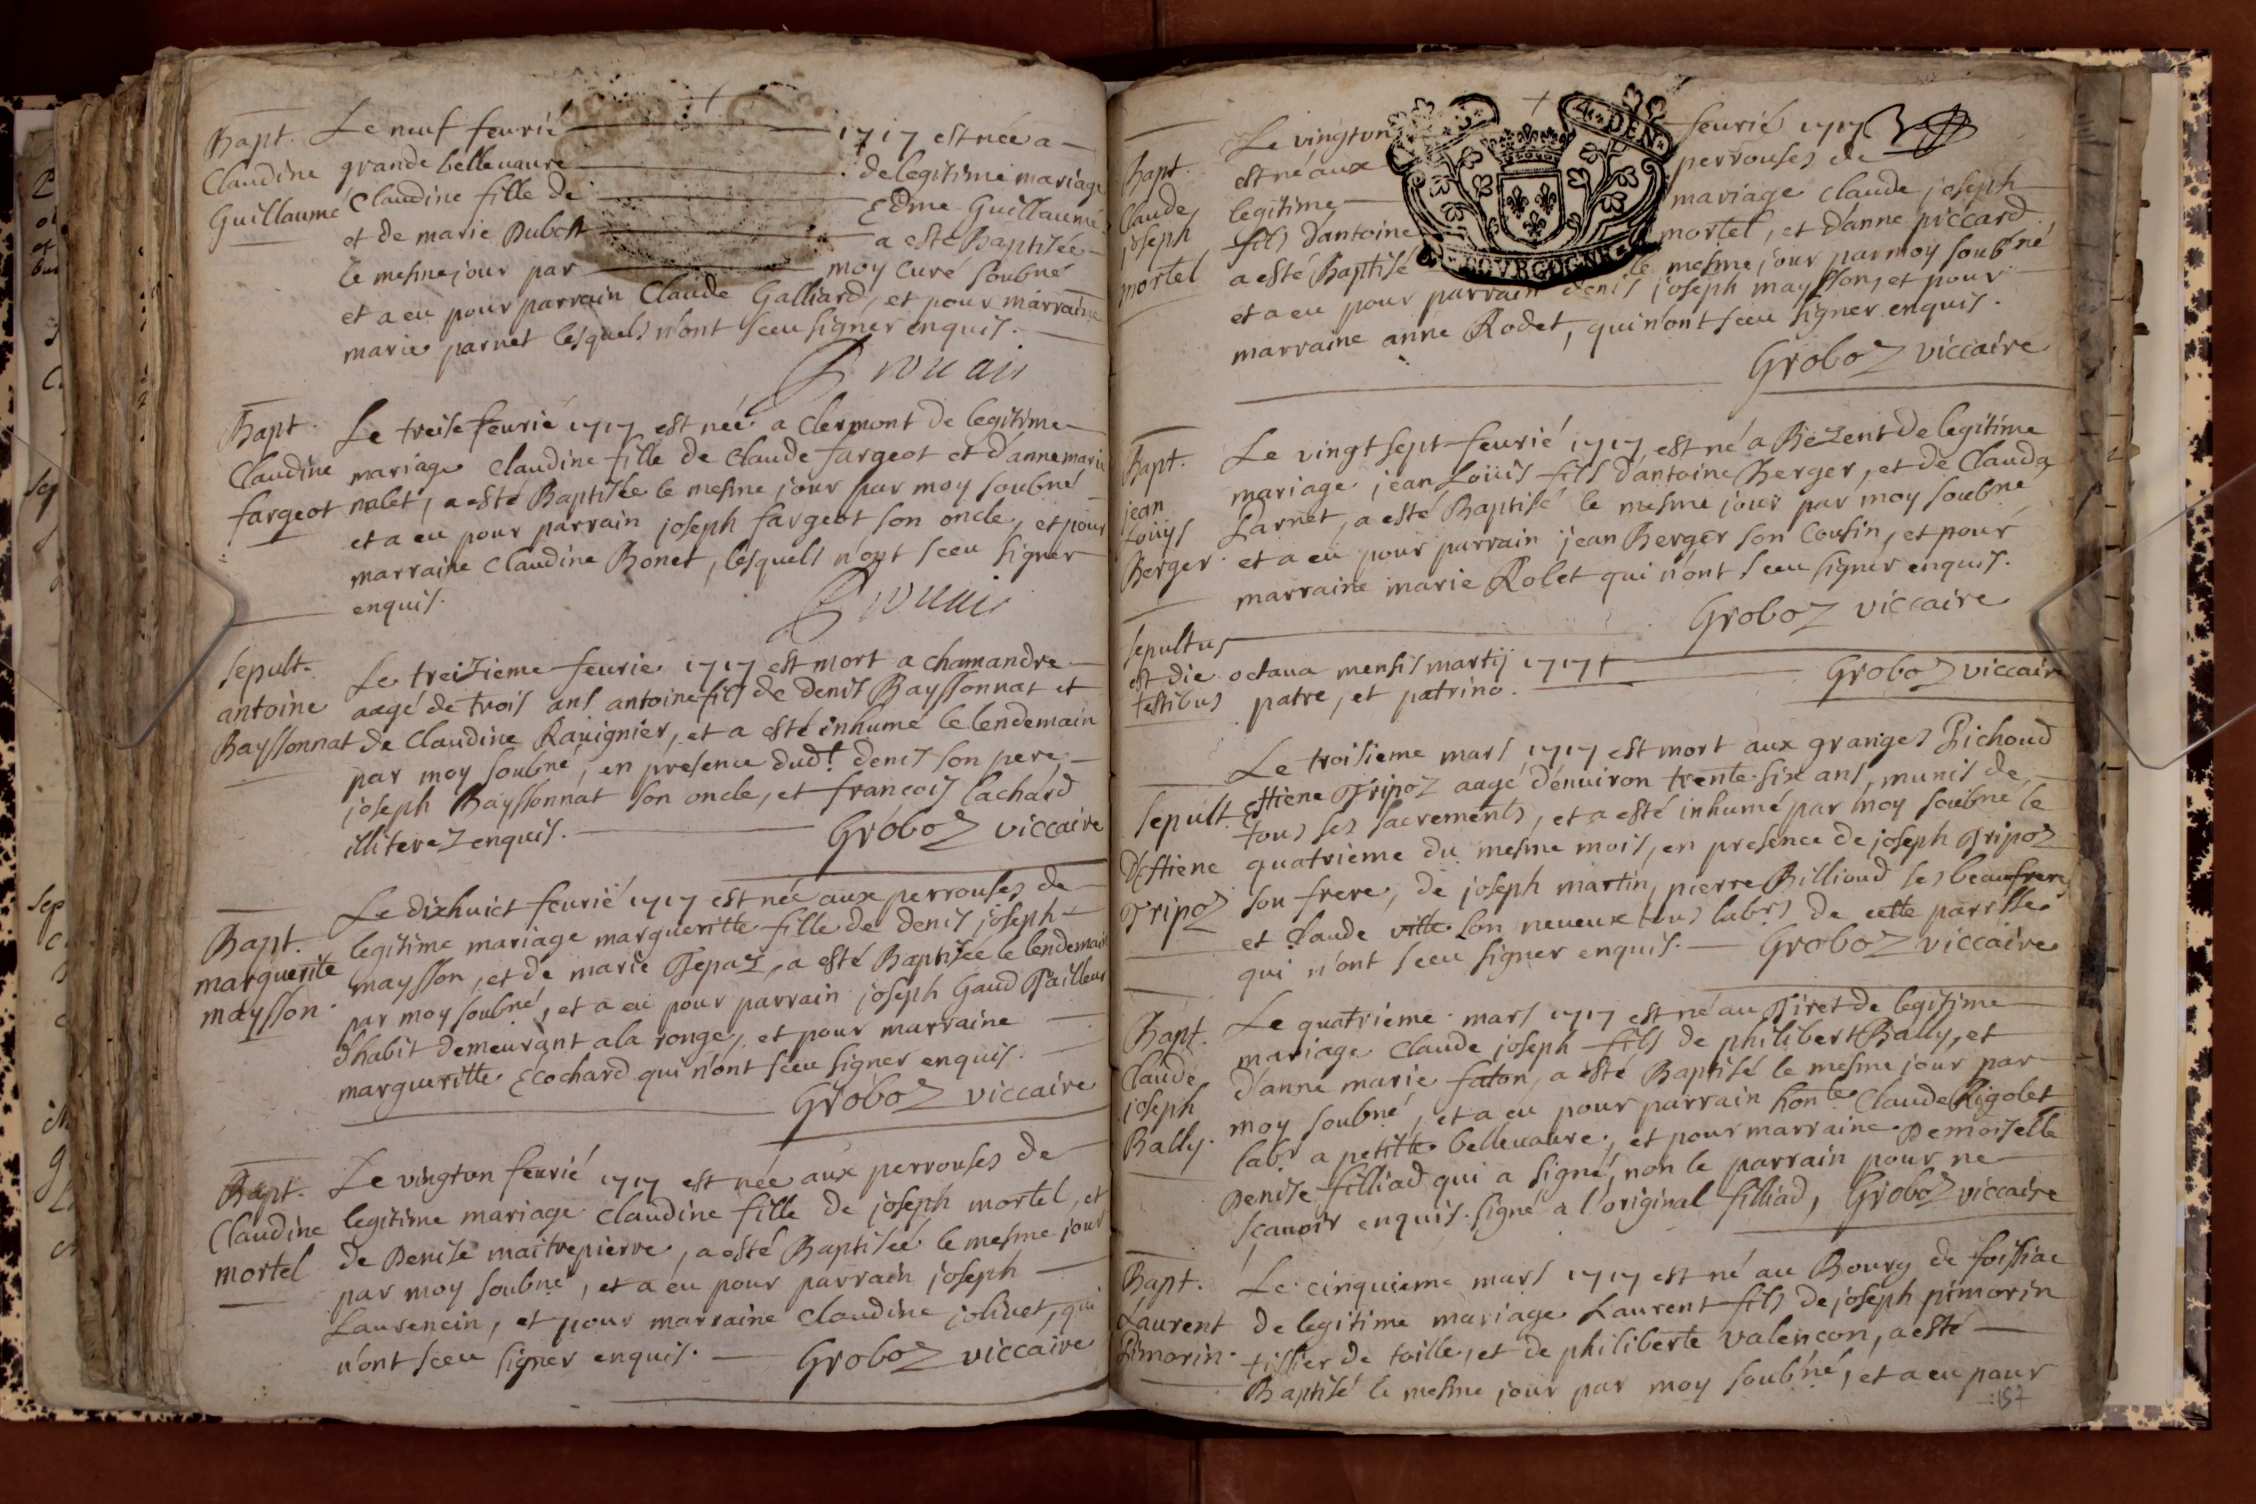 Bapt. Le neuf feurié 1717 est née a
Claudine grande belleuaure de legitime mariage
Guillaumé Claudine fille de Edme Guillaume
et de marie Dubost a esté Baptisée
le mesme jour par moy Curé soubné
et a eu pour parrain Claude Galliard, et pour marraine
marie parnet lesquels n'ont sceu signer enquis.
Bapt. Le treise feurié 1717 est née a Clermont de legitime
Claudine mariage Claudine fille de Claude fargeot et d'anne marie
fargeot nalet, a esté Baptisée le mesme jour par moy soubné
et a eu pour parrain joseph fargeot son oncle, et pour
marraine Claudine Bonet, lesquels n'ont sceu signer
enquis.
sepult. Le treizieme feurie 1717 est mort a chamandre
antoine aagé de trois ans antoine fils de denis Bayssonnat et
Bayssonnat de Claudine Rauignier, et a esté inhumé le lendemain
par moy soubné, en presence dudt. denis son pere,
joseph Bayssonnat son oncle, et francois lachard
illiterez enquis. Groboz viccaire
Le dixhuict feurié 1717 est née aux perrouses de
Bapt. legitime mariage margueritte fille de denis joseph
marguerite maysson, et de marie Tepaz, a esté Baptisée le lendemain
maysson. par moy soubné, et a eu pour parrain joseph Gaud Tailleur
d'habit demeurant a la ronge, et pour marraine
margueritte Ecochard qui n'ont sceu signer enquis.
Groboz viccaire
Bapt. Le vingtun feurié 1717 est née aux perrouses de
Claudine legitime mariage Claudine fille de joseph mortel, et
mortel de Denise maitrepierre, a esté Baptisée le mesme jour
par moy soubné, et a eu pour parrain joseph
Laurencin, et pour marraine Claudine joliuet, qui
n'ont sceu signer enquis. Groboz viccaire
Le vingtun feurié 1717
Bapt. est né aux perrouses de
Claude legitime mariage Claude joseph
joseph fils d'antoine mortel, et d'anne piccard
mortel a esté Baptisé le mesme jour par moy soubné
et a eu pour parrain denis joseph maysson, et pour
marraine anne Rodet, qui n'ont sceu signer enquis.
Groboz viccaire
DEN.
BOVRGOGNE
Bapt. Le vingt sept feurié 1717 est né a Bezent de legitime
jean mariage jean Loüis fils d'antoine Berger, et de Clauda
Loüys Larnet, a esté Baptisé le mesme jour par moy soubné
Berger. et a eu pour parrain jean Berger son Cousin, et pour
marraine marie Rolet qui n'ont sceu signer enquis.
Groboz viccaire
sepultus
est die octaua mensis martij 1717
testibus patre, et patrino. Groboz viccaire
Le troisieme mars 1717 est mort aux granges Pichoud
sepult. Estiene Tripoz aagé d'enuiron trente six ans, munis de
tous ses sacrements, et a esté inhumé par moy soubné le
d'Estiene quatrieme du mesme mois, en presence de joseph Tripoz
Tripoz son frere, de joseph martin, pierre Billioud ses beaufreres
et Claude vitte son neueux tous labrs de cette parrsse
qui n'ont sceu signer enquis. Groboz viccaire
Bapt. Le quatrieme mars 1717 est né au Tiret de legitime
Claude mariage Claude joseph fils de philibert Bally, et
joseph d'anne marie faton, a esté Baptisé le mesme jour par
Bally. moy soubné, et a eu pour parrain honble Claude Rigolet
labr a petitte belleuaure, et pour marraine Demoiselle
Denise filliad qui a signé, non le parrain pour ne
scauoir enquis. signé a l'original filliad, Groboz viccaire
Bapt. Le cinquieme mars 1717 est né au Bourg de foissiac
Laurent de legitime mariage Laurent fils de joseph pimorin
Pimorin. tissier de toille, et de philiberte Valencon, a esté
Baptisé le mesme jour par moy soubné, et a eu pour
157